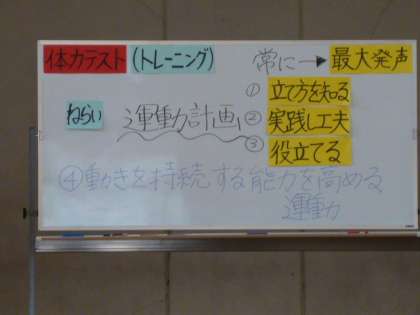 体力テスト(トレーニング) 常に→最大発声
① 立て方を知る
ねらい 運動計画 ② 実践し工夫
③ 役立てる
④動きを持続する能力を高める
運動